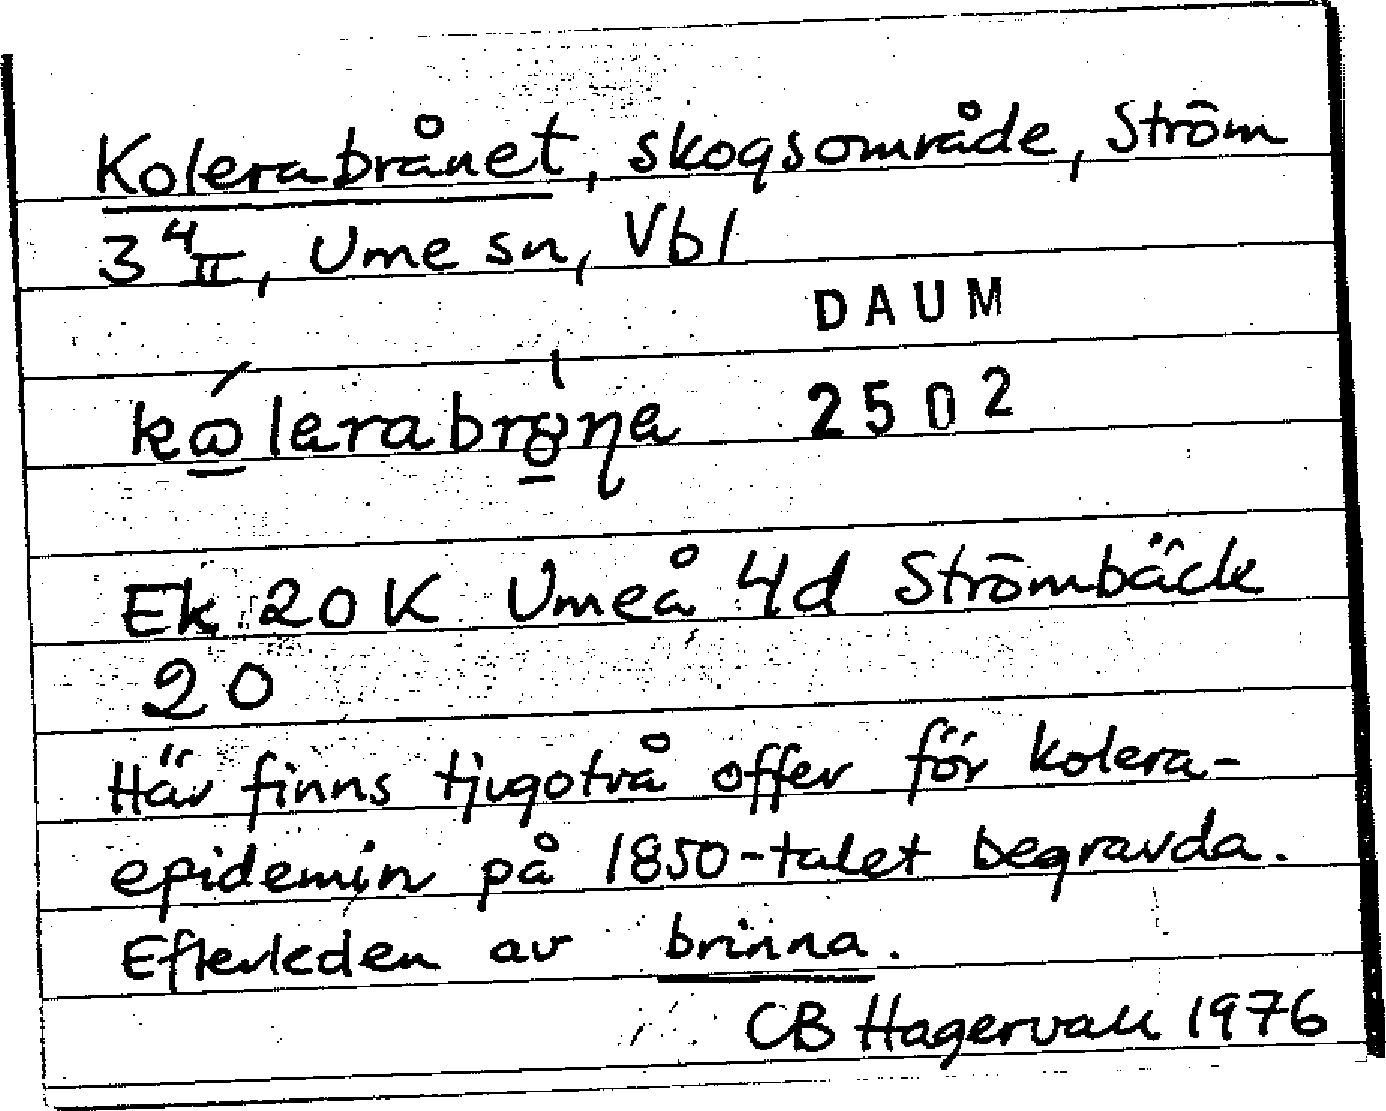 Kolerabrånet, skogsområde, Ström
3 4 II, Ume sn, Vbl
DAUM
2502
Ek 20 K Umeå 4d Strömbäck
20
Här finns tjugotvå offer för kolera-
epidemin på 1850-talet begravda.
Efterleden av brinna.
CB Hagervall 1976